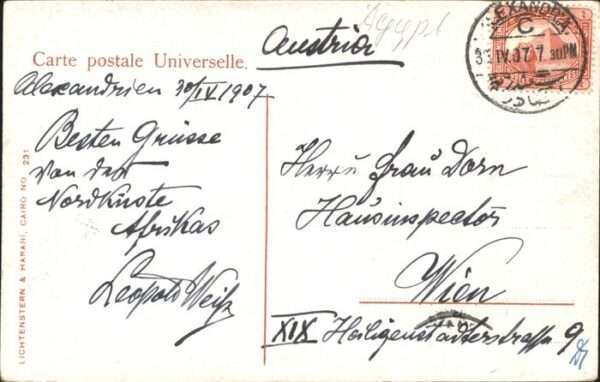 Ägypt
Carte postale Universelle.
Austria
ALEXANDRIA
C
30 IV 07 7.30PM
Alexandrien 30/IV 1907
Besten Grüsse
von der
Nordküste
Afrikas
Leopold Weiß
Herrn & Frau Dorn
Hausinspector
Wien
XIX Heiligenstädterstrasse 9
LICHTENSTERN & HARARI, CAIRO NO. 231